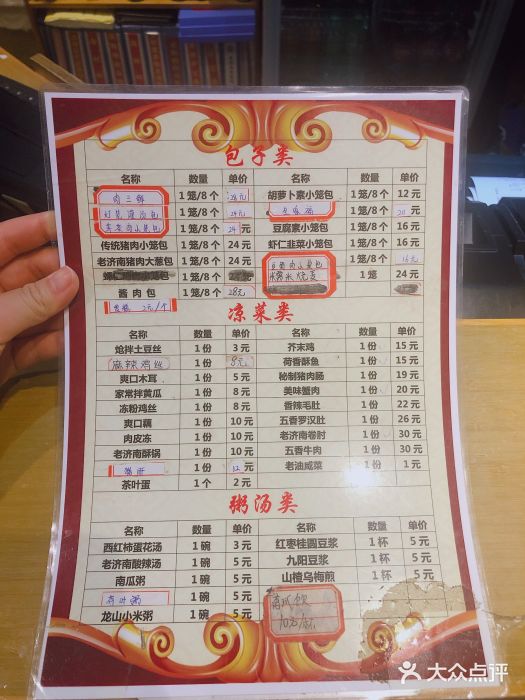 包子类
名称 数量 单价 名称 数量 单价
肉三鲜 1笼/8个 元 胡萝卜素小笼包 1笼/8个 12元
灌汤包 1笼/8个 24元 1笼/8个 20元
肉小笼包 1笼/8个 24元 豆腐素小笼包 1笼/8个 16元
传统猪肉小笼包 1笼/8个 24元 虾仁韭菜小笼包 1笼/8个 16元
老济南猪肉大葱包 1笼/8个 24元 肉小笼包 1笼/8个 16元
1笼/8个 元 糯米烧麦 1笼 24元
酱肉包 1笼/8个 28元 1笼/8个
2元/个
凉菜类
名称 数量 单价 名称 数量 单价
炝拌土豆丝 1份 3元 芥末鸡 1份 15元
麻辣鸡丝 1份 8元 荷香酥鱼 1份 15元
爽口木耳 1份 5元 秘制猪肉肠 1份 19元
家常拌黄瓜 1份 8元 美味蟹肉 1份 20元
冻粉鸡丝 1份 8元 香辣毛肚 1份 22元
爽口藕 1份 10元 五香罗汉肚 1份 26元
肉皮冻 1份 10元 老济南卷肘 1份 30元
老济南酥锅 1份 10元 五香牛肉 1份 30元
1份 12元 老油咸菜 1份 1元
茶叶蛋 1个 2元
粥汤类
名称 数量 单价 名称 数量 单价
西红柿蛋花汤 1碗 3元 红枣桂圆豆浆 1杯 5元
老济南酸辣汤 1碗 5元 九阳豆浆 1杯 5元
南瓜粥 1碗 5元 山楂乌梅煎 1杯 5元
荷叶粥 1碗 5元
龙山小米粥 1碗 5元
大众点评